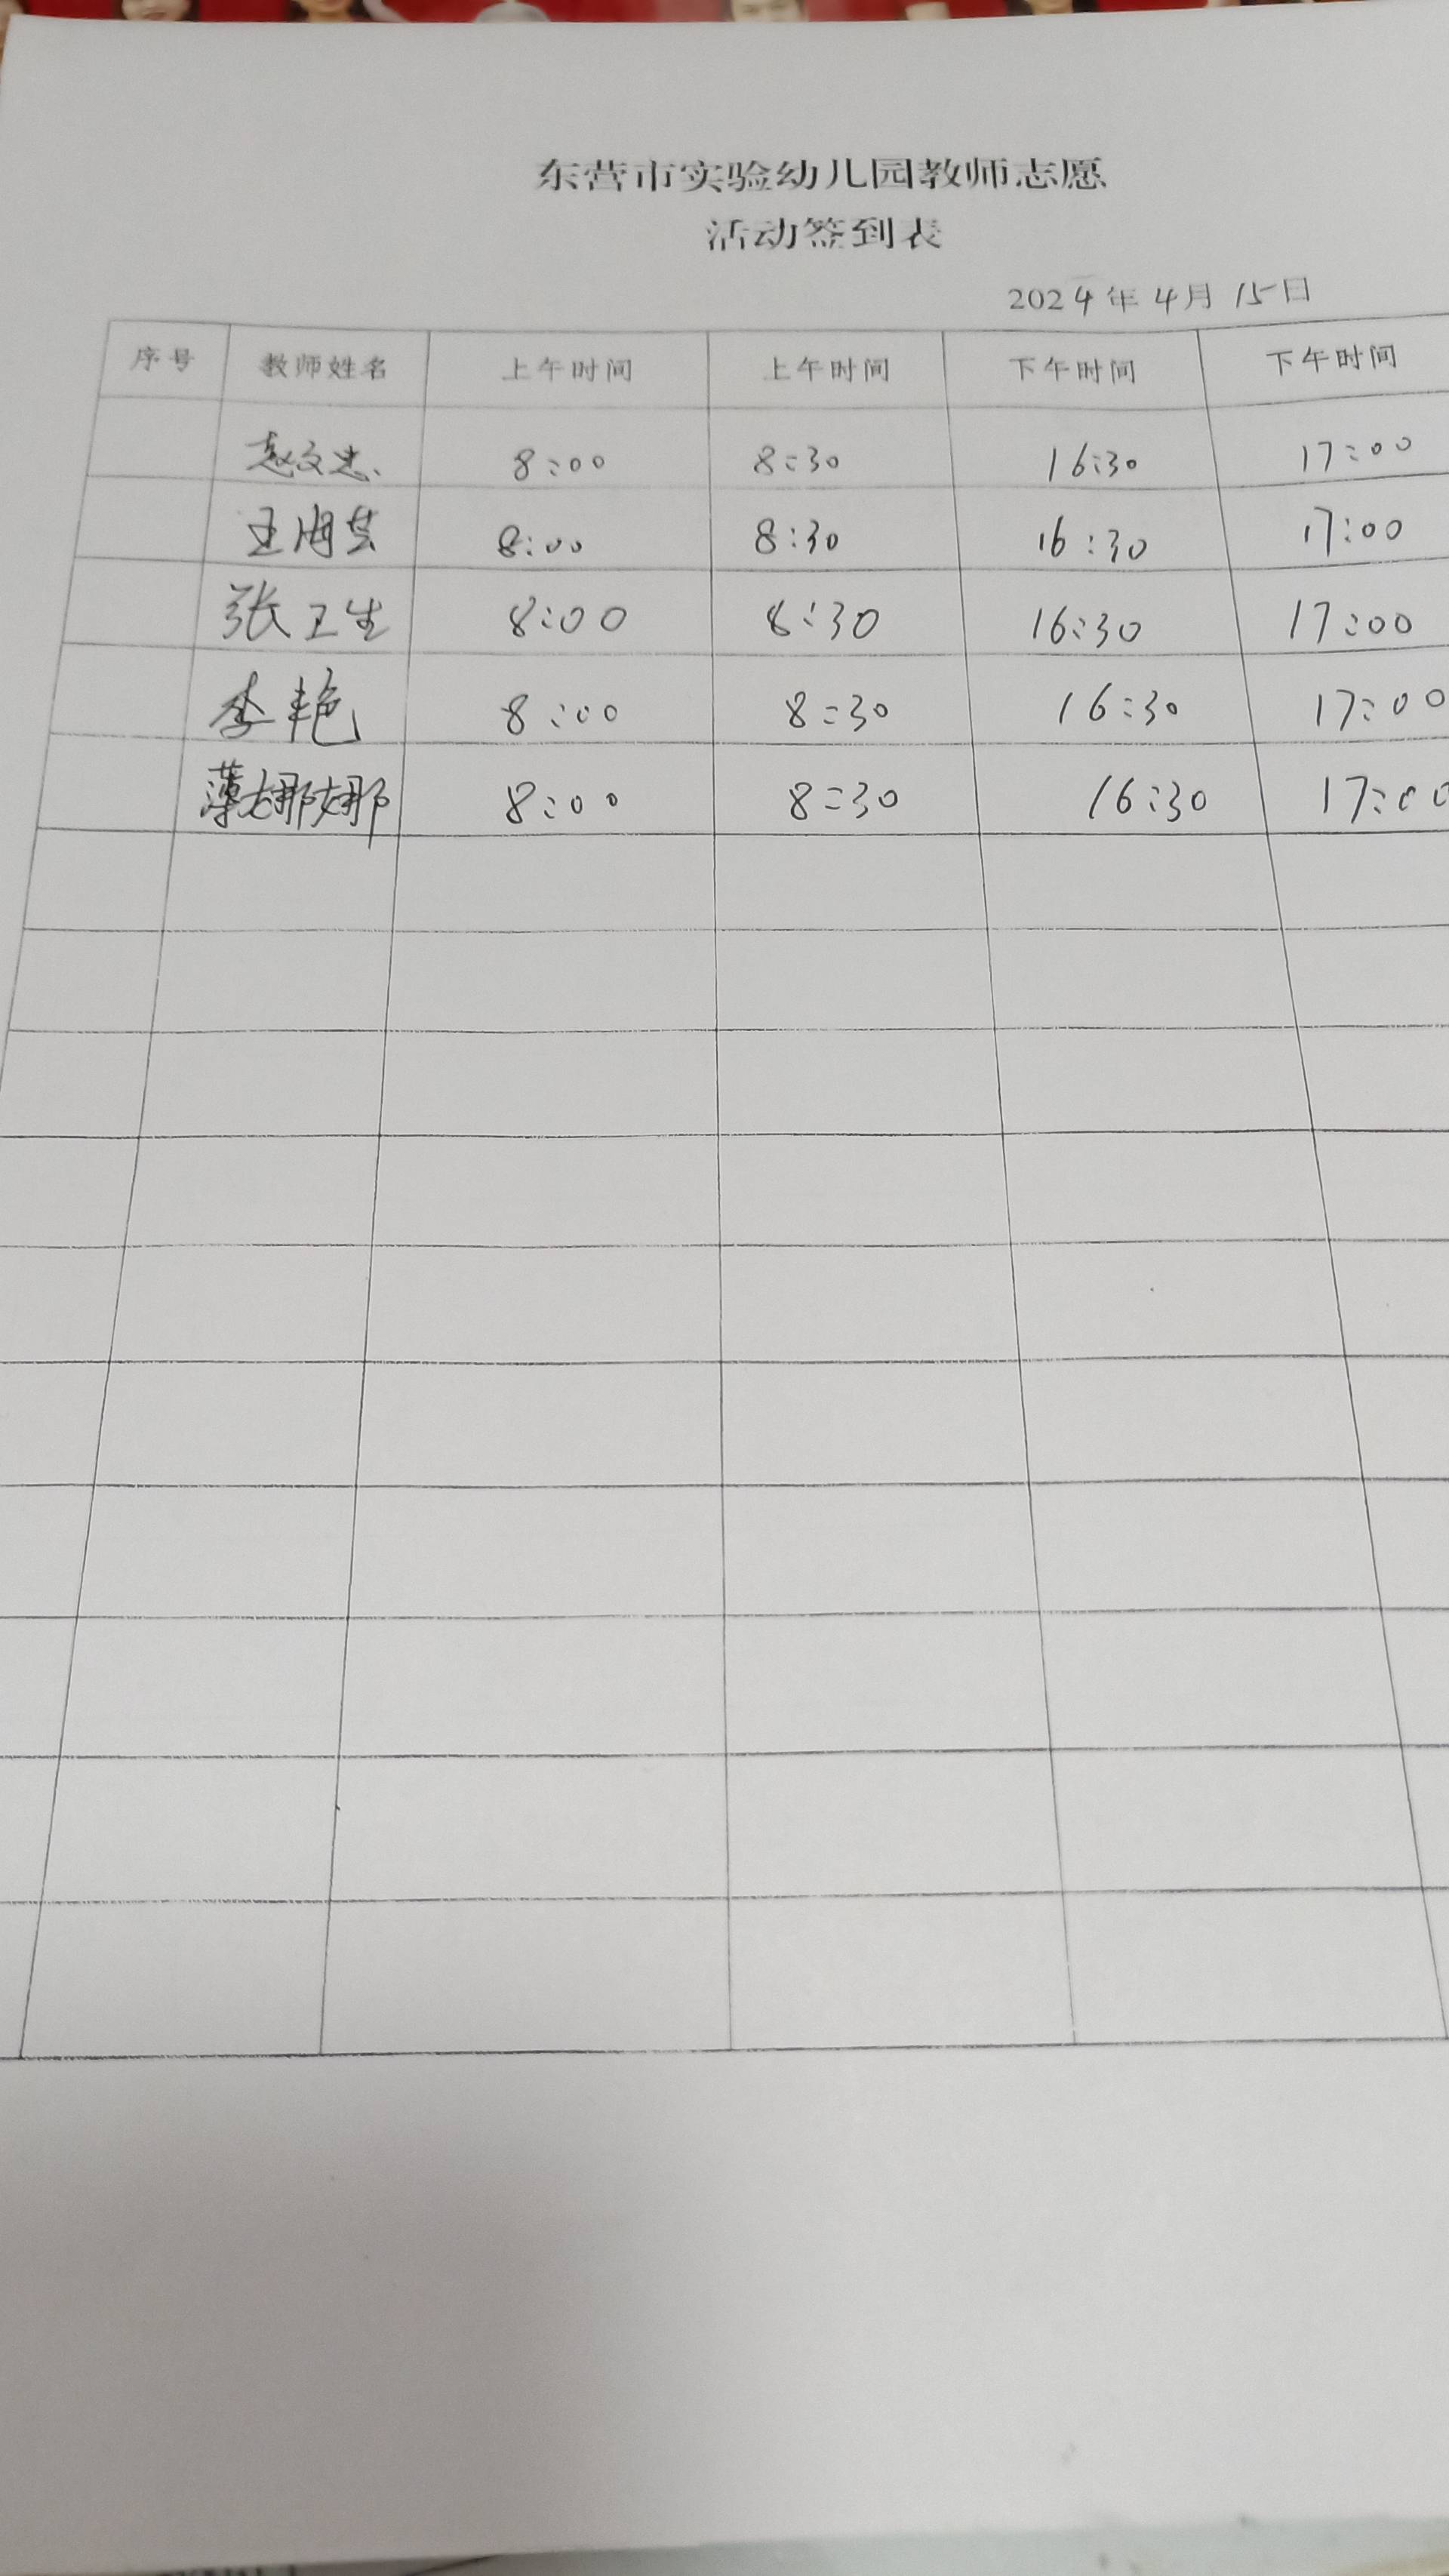 东营市实验幼儿园教师志愿
活动签到表
2024年4月15日
序号 教师姓名 上午时间 上午时间 下午时间 下午时间
赵文忠 8:00 8:30 16:30 17:00
王海 8:00 8:30 16:30 17:00
张卫生 8:00 8:30 16:30 17:00
李艳 8:00 8:30 16:30 17:00
薄娜娜 8:00 8:30 16:30 17:00